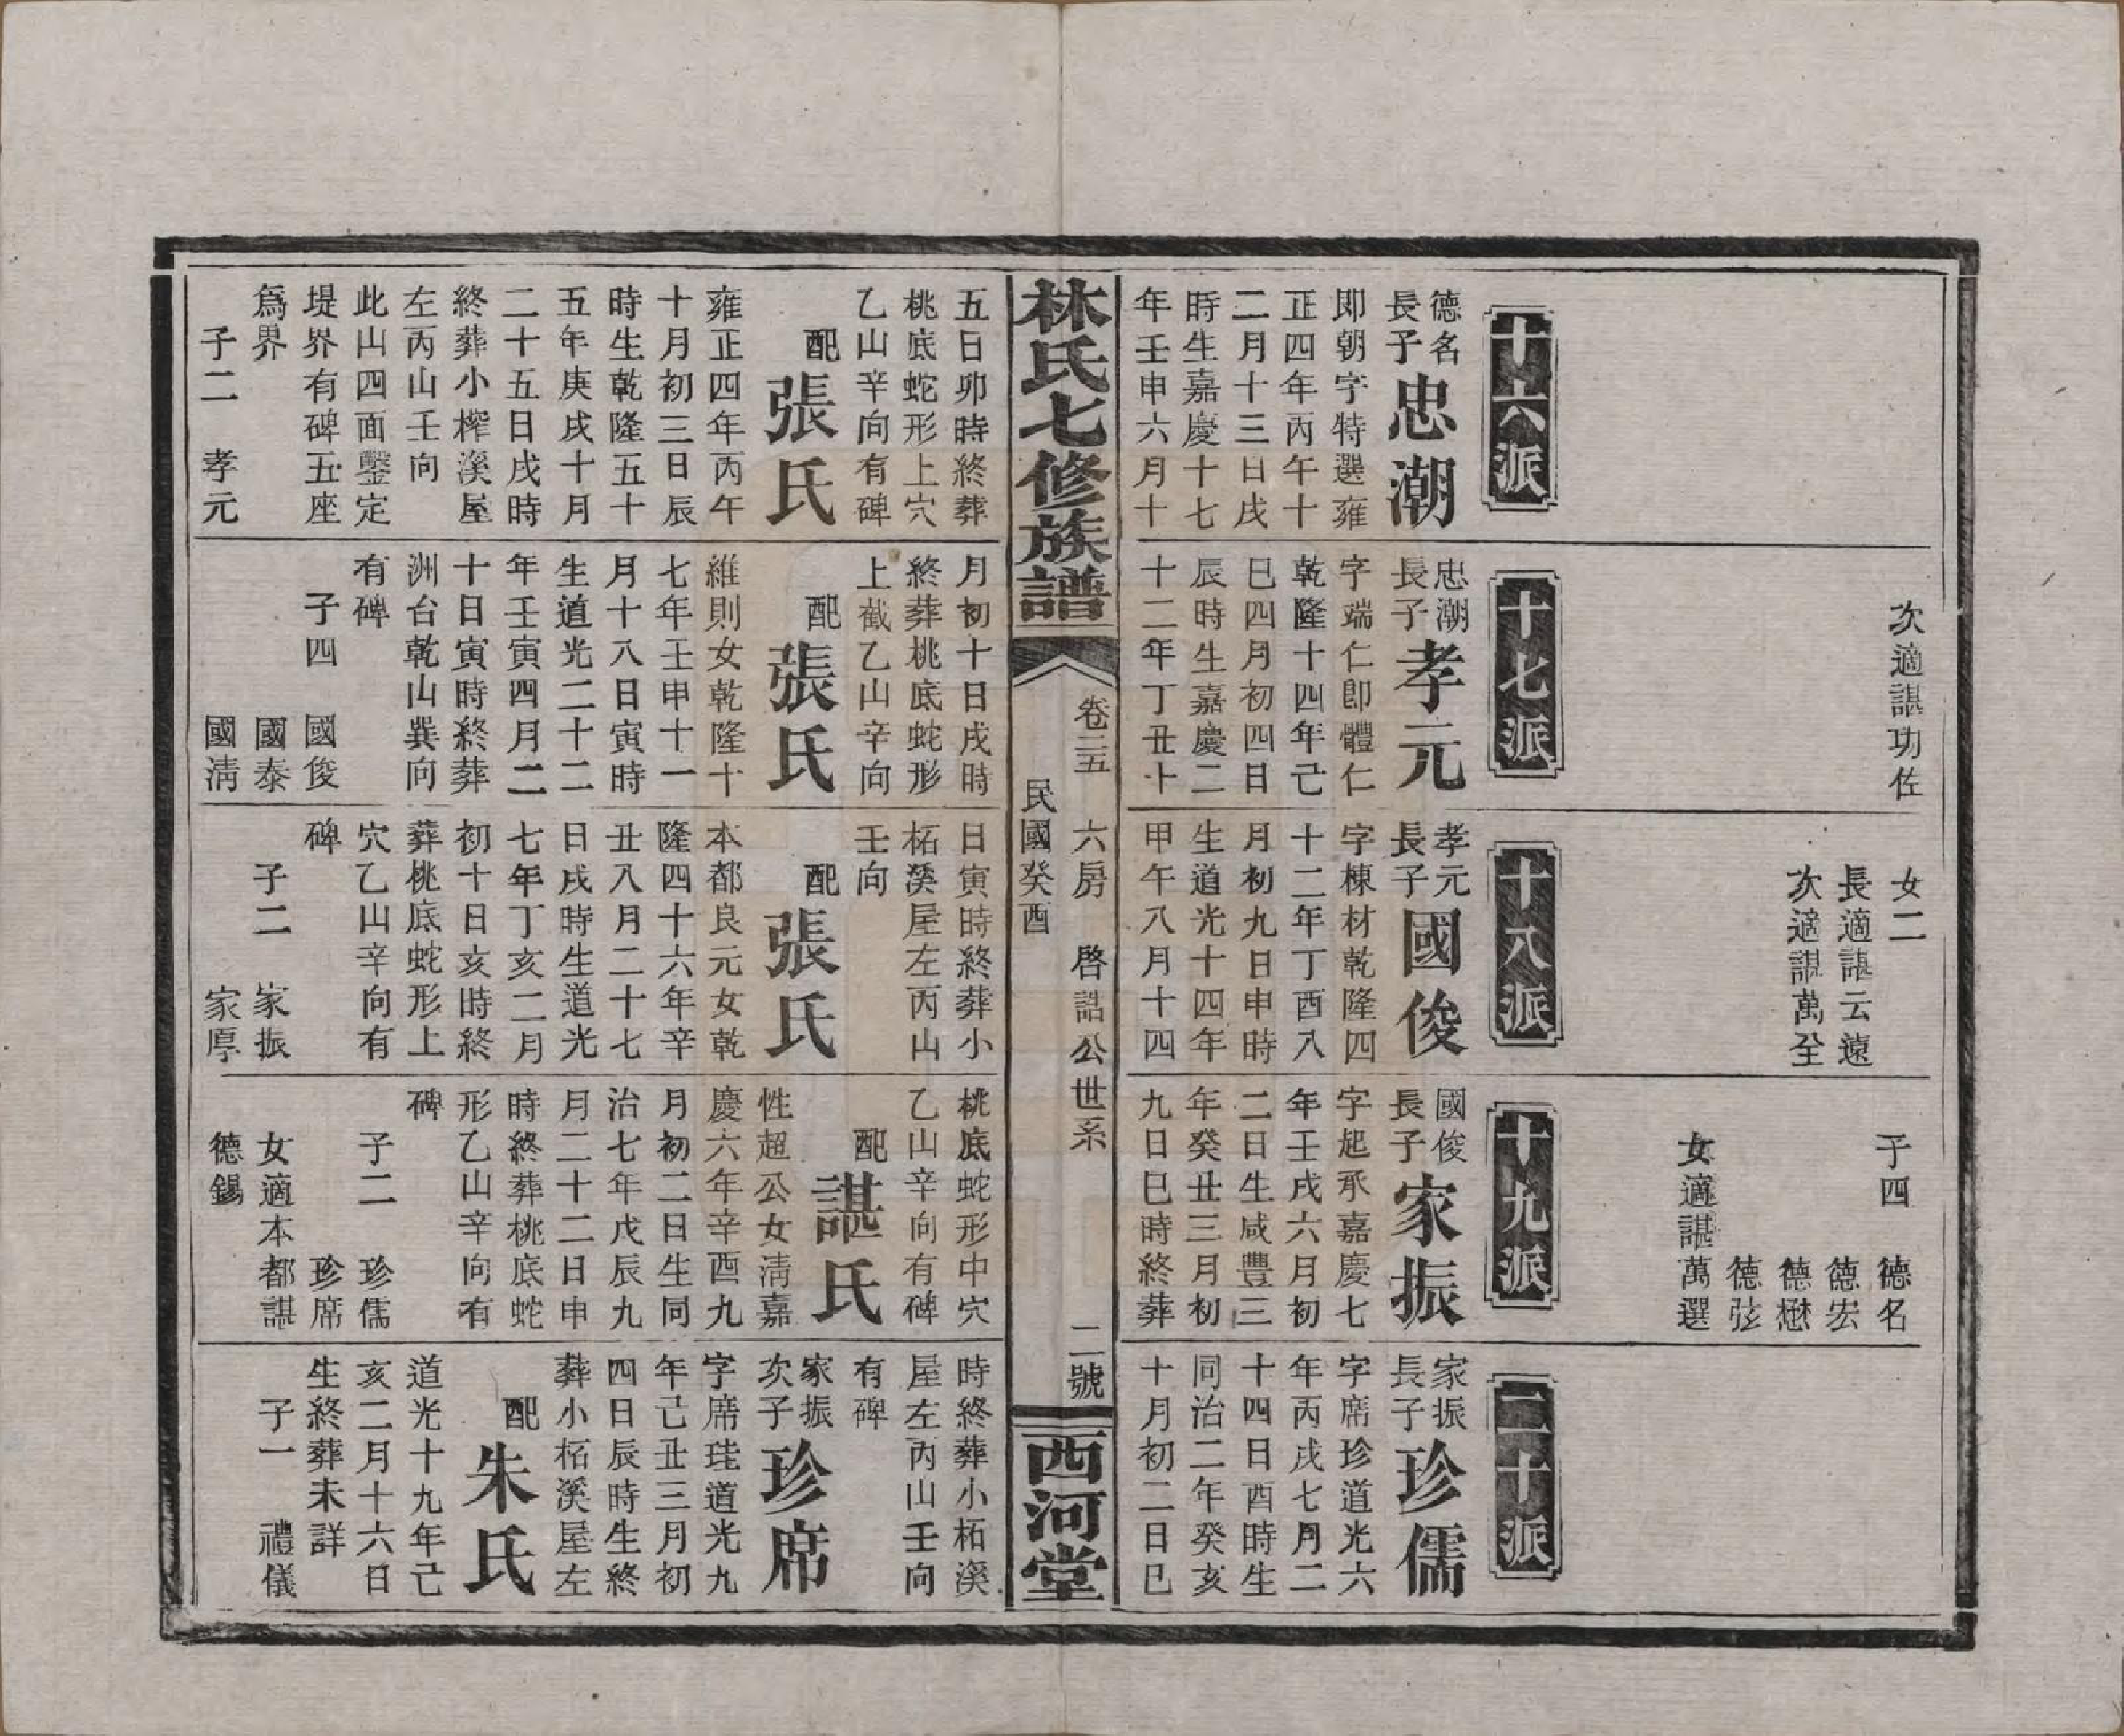 十六派
德名
長子
忠潮
即朝字特選雍
正四年丙午十
二月十三日戌
時生嘉慶十七
年壬申六月十
五日卯時終葬
桃底蛇形上穴
乙山辛向有碑
配張氏
雍正四年丙午
十月初三日辰
時生乾隆五十
五年庚戌十月
二十五日戌時
終葬小榨溪屋
左丙山壬向
此山四面鑿定
堤界有碑五座
爲界
子二 孝元
次適諶功佐
十七派
忠潮
長子
孝元
字端仁卽體仁
乾隆十四年己
巳四月初四日
辰時生嘉慶二
十二年丁丑十
月初十日戌時
終葬桃底蛇形
上截乙山辛向
配張氏
維則女乾隆十
七年壬申十一
月十八日寅時
生道光二十二
年壬寅四月二
十日寅時終葬
洲台乾山巽向
有碑
子四 國俊
國泰
國淸
女二
長適諶云遠
次適諶萬全
十八派
孝元
長子
國俊
字棟材乾隆四
十二年丁酉八
月初九日申時
生道光十四年
甲午八月十四
日寅時終葬小
柘溪屋左丙山
壬向
配張氏
本都良元女乾
隆四十六年辛
丑八月二十七
日戌時生道光
七年丁亥二月
初十日亥時終
葬桃底蛇形上
穴乙山辛向有
碑
子二 家振
家厚
子四 德名
德宏
德懋
德弦
女適諶萬選
十九派
國俊
長子
家振
字起承嘉慶七
年壬戌六月初
二日生咸豐三
年癸丑三月初
九日巳時終葬
桃底蛇形中穴
乙山辛向有碑
配諶氏
性超公女淸嘉
慶六年辛酉九
月初二日生同
治七年戊辰九
月二十二日申
時終葬桃底蛇
形乙山辛向有
碑
子二 珍儒
珍席
女適本都諶
德錫
二十派
家振
長子
珍儒
字席珍道光六
年丙戌七月二
十四日酉時生
同治二年癸亥
十月初二日巳
時終葬小柘溪
屋左丙山壬向
有碑
家振
次子
珍席
字席珪道光九
年己丑三月初
四日辰時生終
葬小柘溪屋左
配朱氏
道光十九年己
亥二月十六日
生終葬未詳
子一 禮儀
林氏七修族譜
卷二五 六房 啓詔公世系 二號
民國癸酉
西河堂